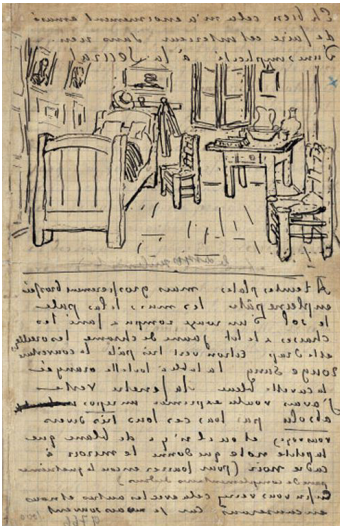 Eh bien cela m'a enormement amusé
de faire cet interieur sans rien
D'une simplicité à la Seurat
A teintes plates mais grossierement brossées
en pleine pâte les murs lilas pale
le sol d'un rouge rompu & fané les
chaises & le lit jaune de chrome les oreillers
et le drap citron vert très pâle la couverture
rouge sang la table à toilette orangée
la cuvette bleue la fenetre verte
j'avais voulu exprimer un repos
absolu par tous ces tons très divers
vous voyez et où il n'y a de blanc que
la petite note que donne le miroir à
cadre noir (pour fourrer encore la quatrième
paire de complementaires dedans)
Enfin vous verrez cela avec les autres et nous
en causerons car je ne sais souvent